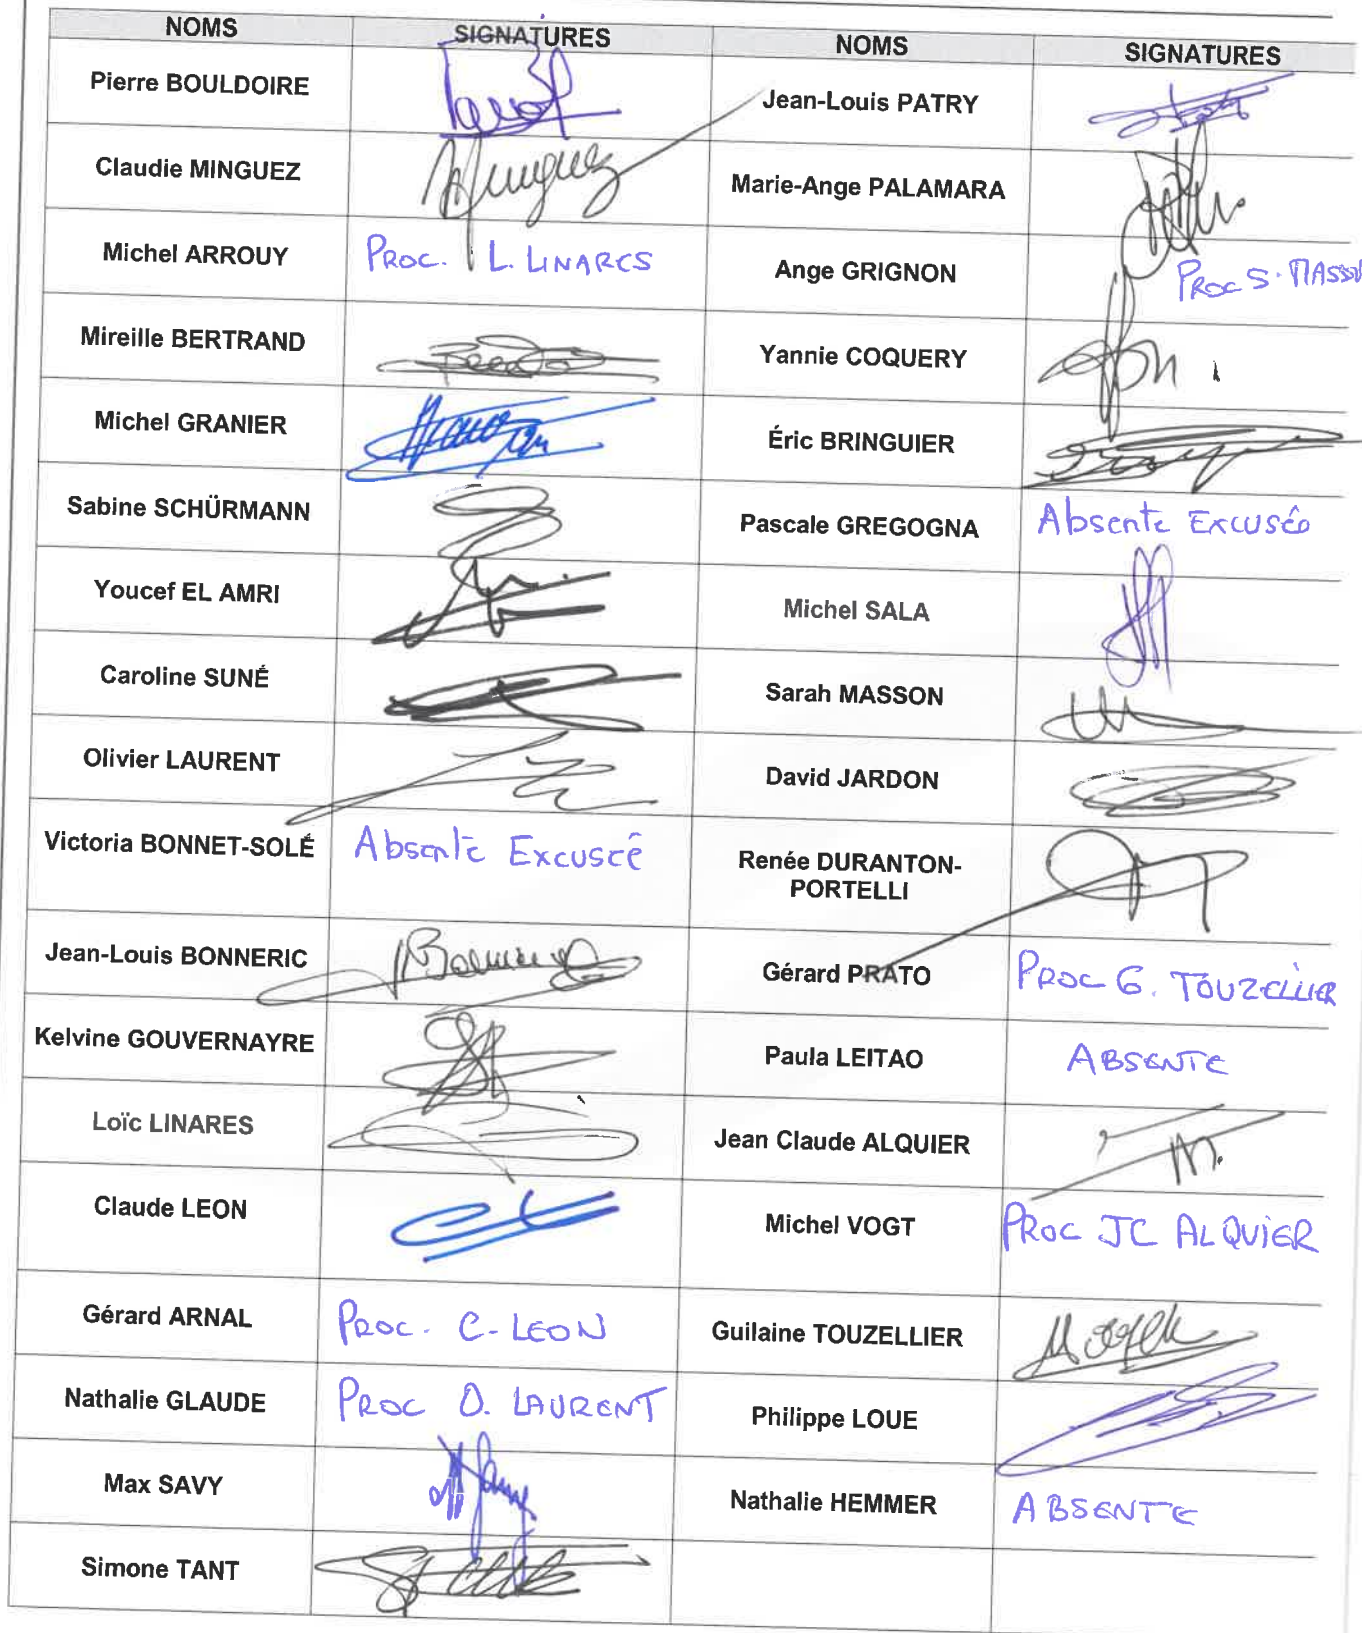 NOMS SIGNATURES NOMS SIGNATURES
Pierre BOULDOIRE Jean-Louis PATRY
Claudie MINGUEZ Minguez Marie-Ange PALAMARA
Michel ARROUY PROC. L. LINARES Ange GRIGNON PROC S. MASSO
Mireille BERTRAND Yannie COQUERY
Michel GRANIER Éric BRINGUIER
Sabine SCHÜRMANN Pascale GREGOGNA Absente Excusée
Youcef EL AMRI Michel SALA
Caroline SUNÉ Sarah MASSON
Olivier LAURENT David JARDON
Victoria BONNET-SOLÉ Absente Excusée Renée DURANTON-
PORTELLI
Jean-Louis BONNERIC Gérard PRATO PROC G. TOUZELLIER
Kelvine GOUVERNAYRE Paula LEITAO ABSENTE
Loïc LINARES Jean Claude ALQUIER
Claude LEON Michel VOGT PROC JC ALQUIER
Gérard ARNAL PROC. C-LEON Guilaine TOUZELLIER
Nathalie GLAUDE PROC O. LAURENT Philippe LOUE
Max SAVY Nathalie HEMMER ABSENTE
Simone TANT